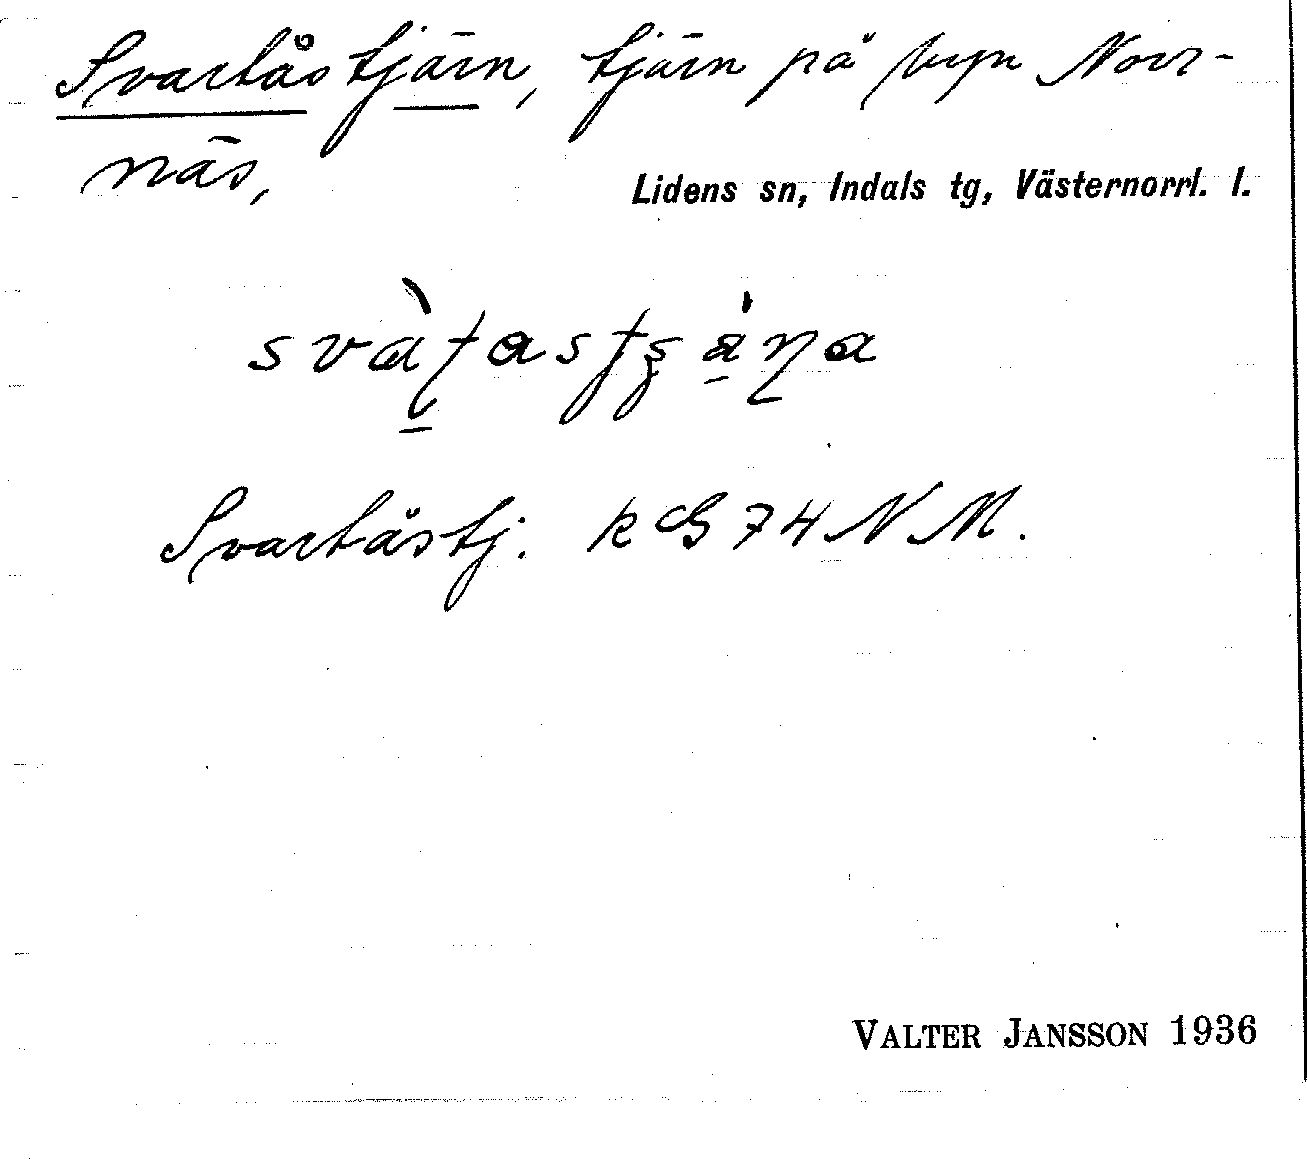 Svartåstjärn, tjärn på byn Norr-
näs,
Lidens sn, Indals tg, Västernorrl. l.
Svartåstj. k G 74 N M.
VALTER JANSSON 1936